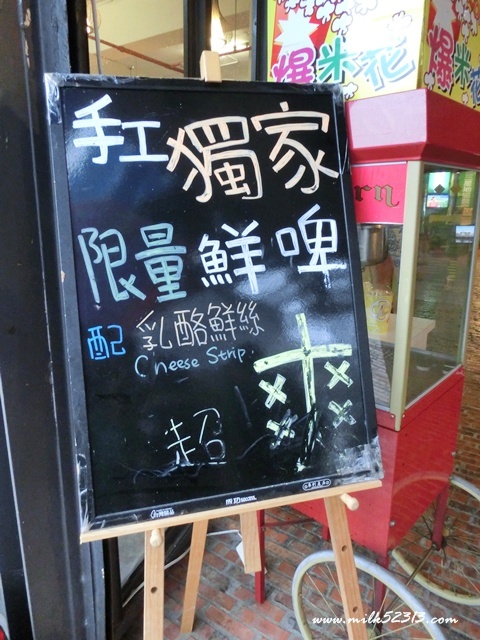 爆米花
爆米花
手工獨家
限量鮮啤
配 乳酪鮮絲
Cheese Strip.
超爽
www.milk52313.com